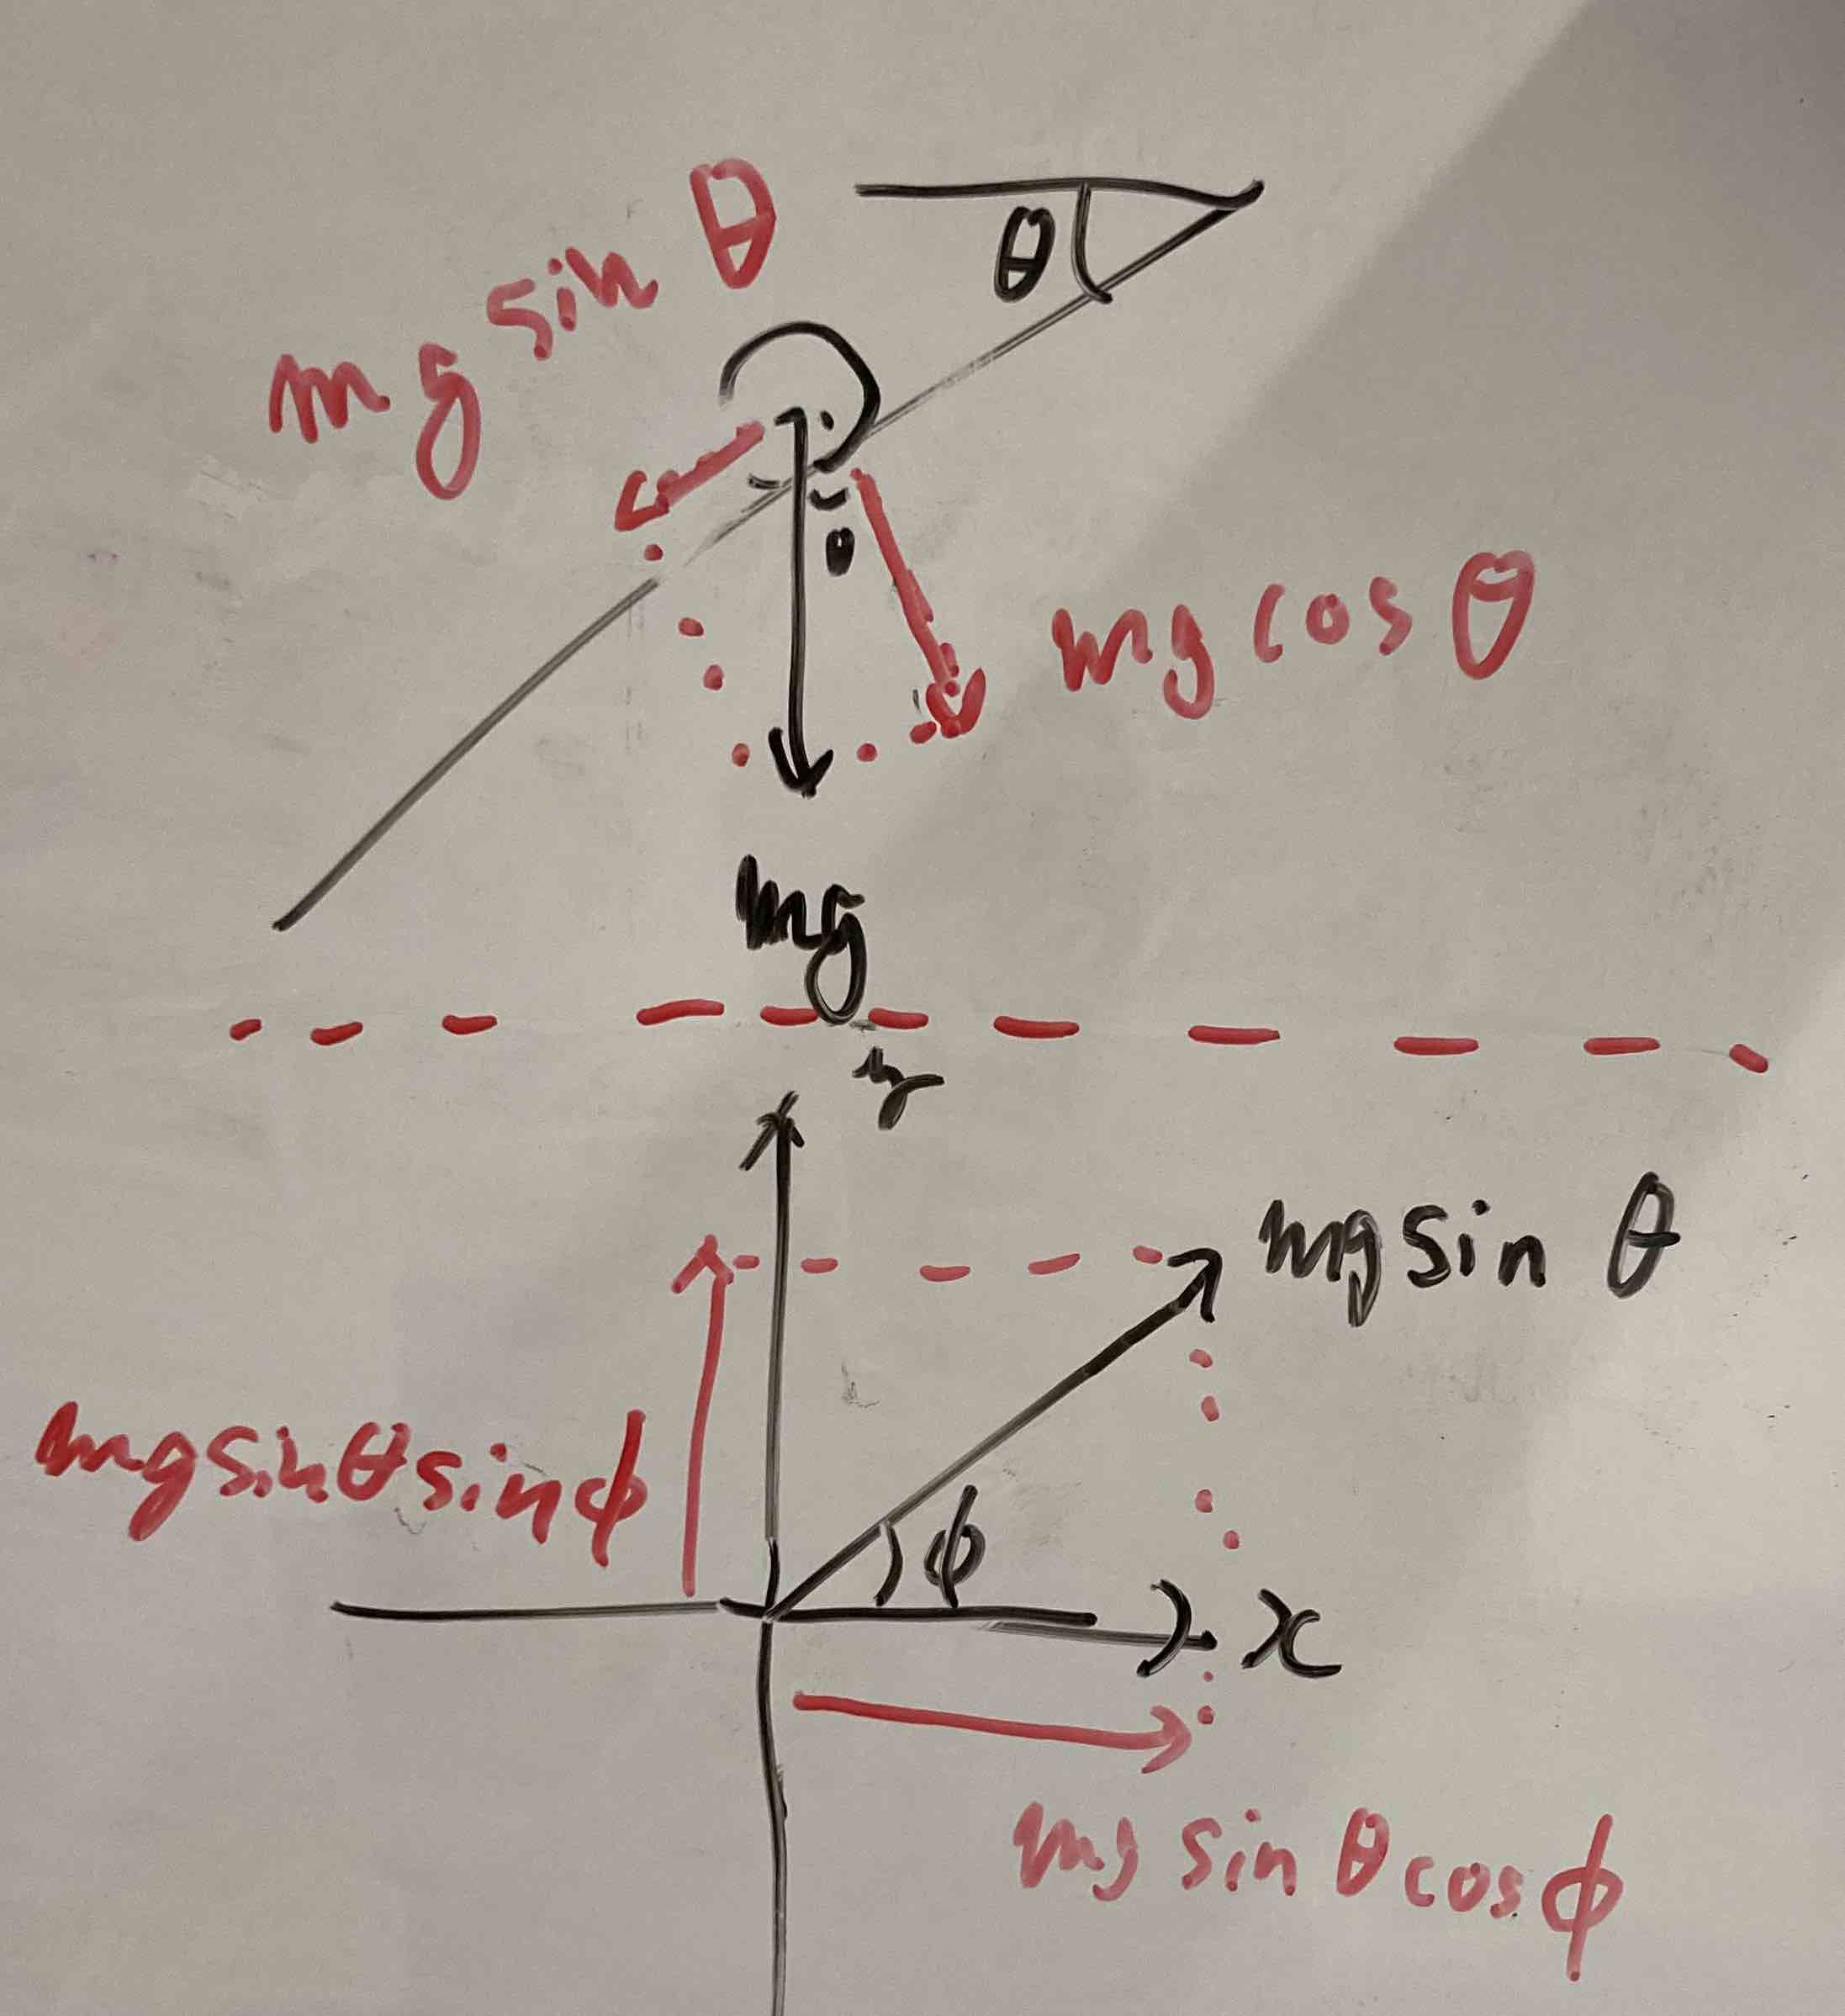 mg sin θ
θ
θ
mg cos θ
mg
y
mg sin θ
mg sin θ sin ϕ
ϕ
x
mg sin θ cos ϕ